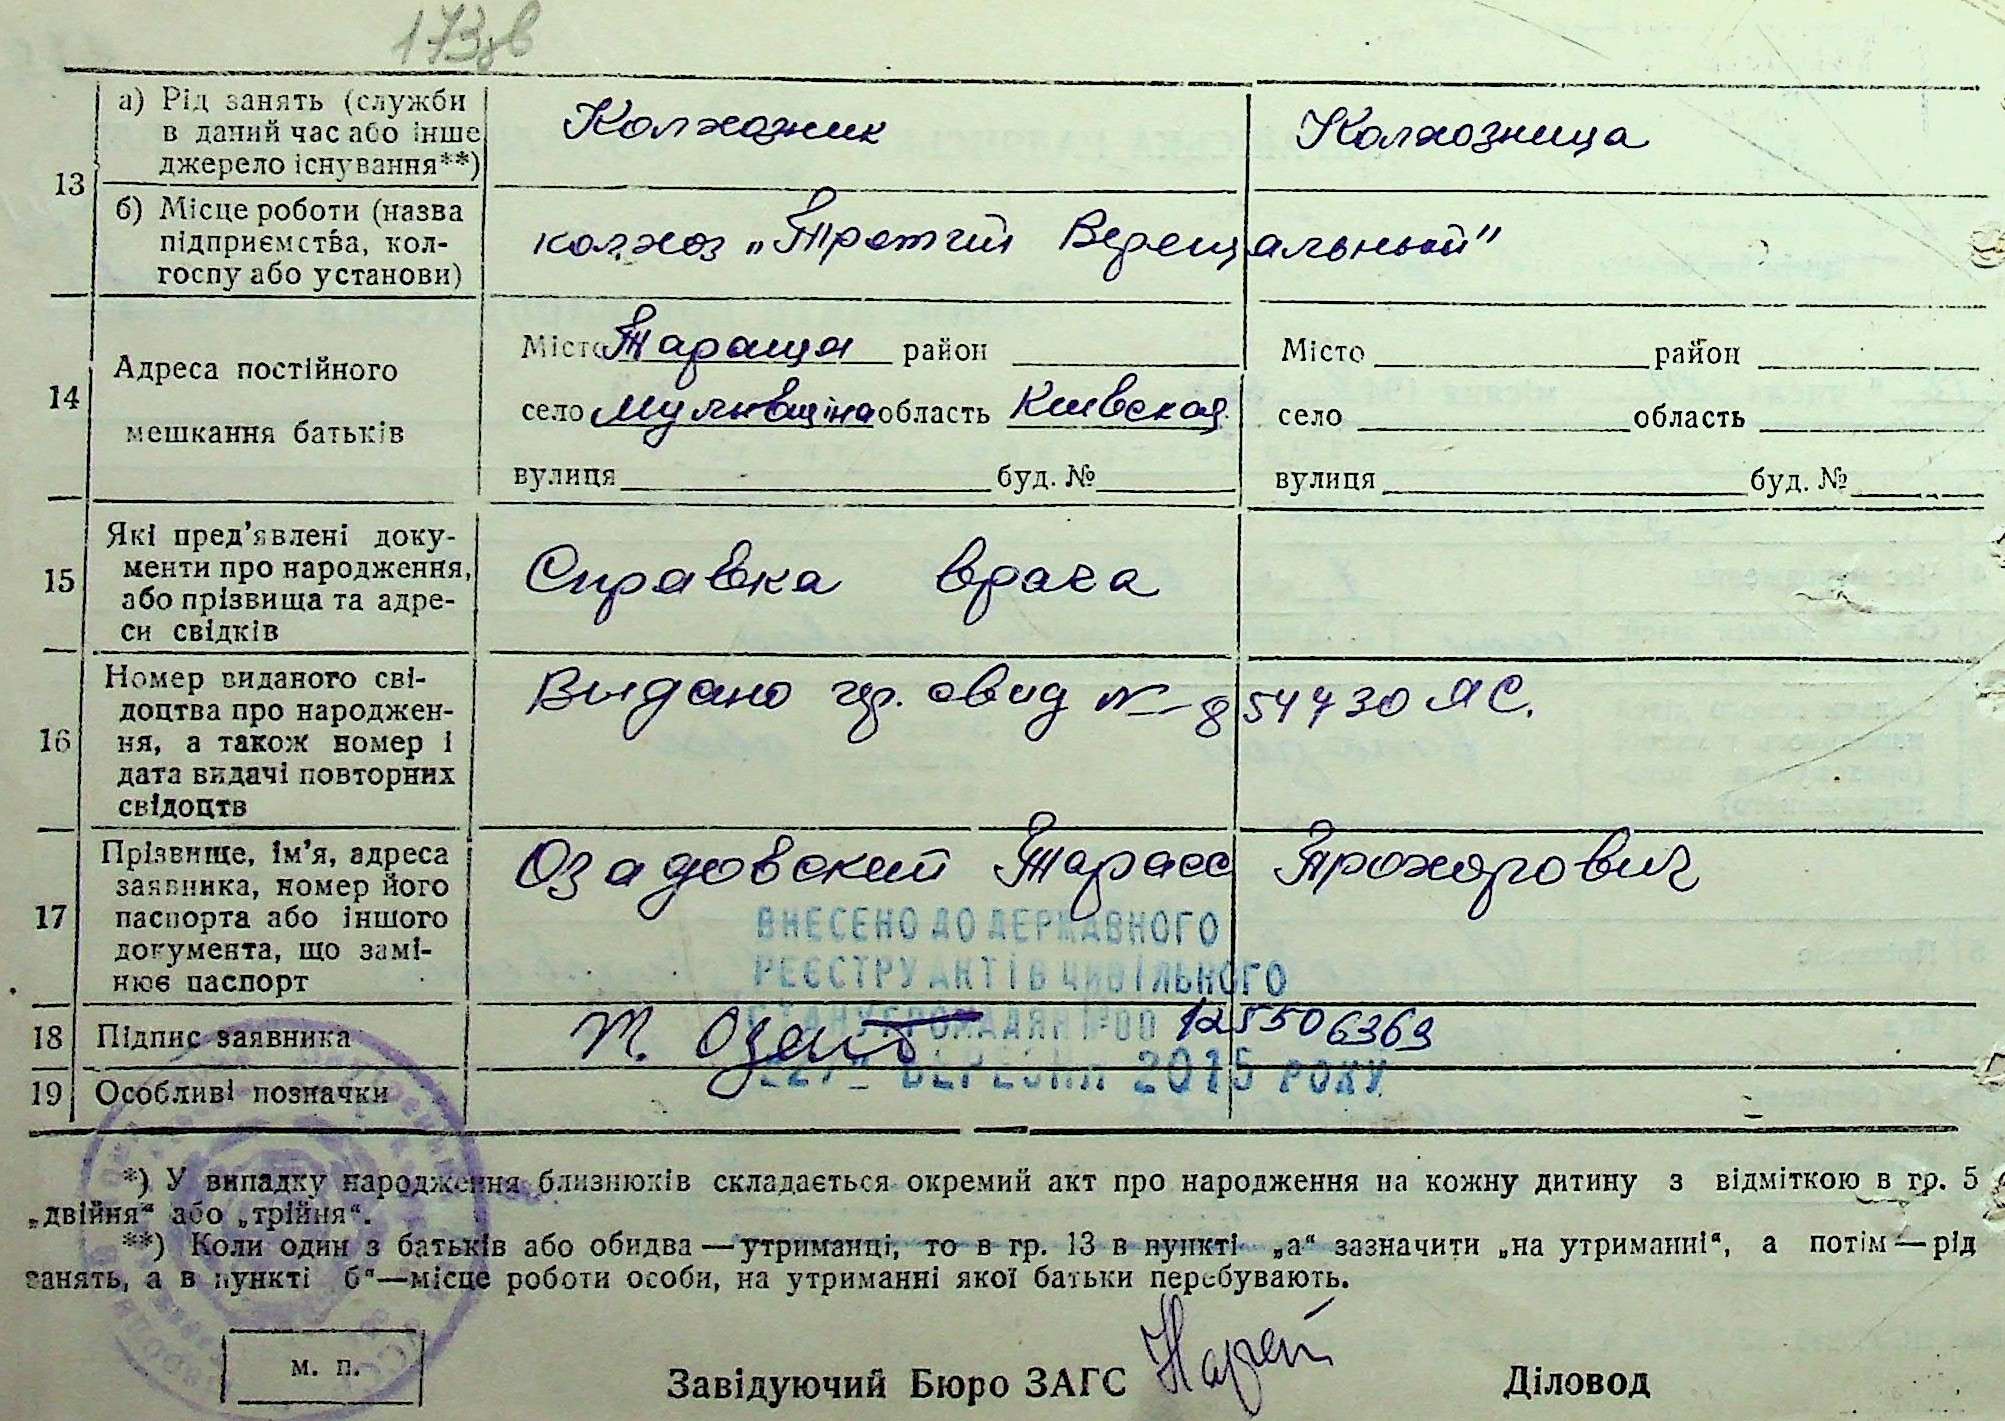 173зв
а) Рід занять (служби в даний час або інше джерело існування**)
Колхозник
Колхозница
13
б) Місце роботи (назва підприємства, колгоспу або установи)
колхоз „Третий Верещальный"
14
Адреса постійного мешкання батьків
Місто Тараща район
село Мулывщіна область Киевская
вулиця буд. №
Місто район
село область
вулиця буд. №
15
Які пред'явлені документи про народження, або прізвища та адреси свідків
Справка врача
16
Номер виданого свідоцтва про народження, а також номер і дата видачі повторних свідоцтв
Видано гр. свид № 854730 ЯС.
17
Прізвище, ім'я, адреса заявника, номер його паспорта або іншого документа, що замінює паспорт
Озадовский Тарасс Прохорович
ВНЕСЕНО ДО ДЕРЖАВНОГО
РЕЄСТРУ АКТІВ ЦИВІЛЬНОГО
СТАНУ ГРОМАДЯН №00 125506369
"22" ВЕРЕСНЯ 2015 РОКУ
18 Підпис заявника
Т. Озад
19 Особливі позначки
*) У випадку народження близнюків складається окремий акт про народження на кожну дитину з відміткою в гр. 5
„двійня“ або „трійня“.
**) Коли один з батьків або обидва—утриманці, то в гр. 13 в пункті „а“ зазначити „на утриманні“, а потім—рід
занять, а в пункті б“—місце роботи особи, на утриманні якої батьки перебувають.
м. п.
Завідуючий Бюро ЗАГС
Діловод